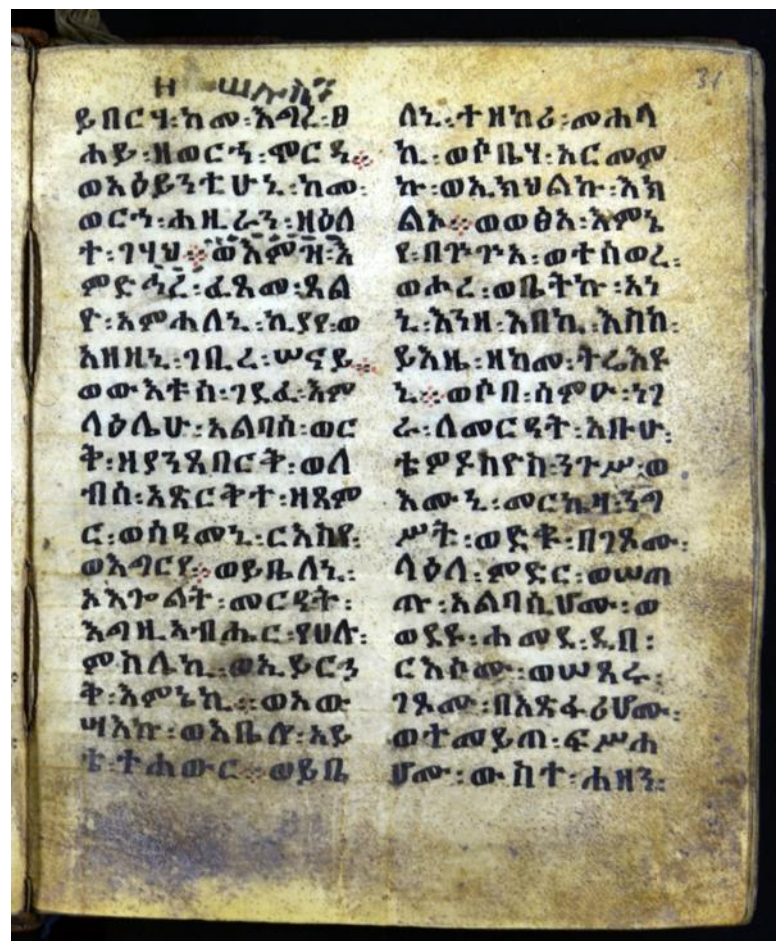 31
ይበርሃ፡ከመ፡እግረ፡ፀ
ሐይ፡ዘወርኃ፡ሞርዱ፨
ወአዕይንቲሁኒ፡ከመ፡
ወርኀ፡ሐዚራን፡ዘዕለ
ት፡ገሃህ፨ወእምዝ፡እ
ምድኅረ፡ፈጸመ፡ጸል
ዮ፡አምሐለኒ፡ኪያየ፡ወ
አዘዘኒ፡ገቢረ፡ሠናይ፨
ወውእቱስ፡ገደፈ፡እም
ላዕሌሁ፡አልባሰ፡ወር
ቅ፡ዘያንጸበርቅ፡ወለ
ብሰ፡አጽርቅተ፡ዘጸም
ር፡ወሰዳመኒ፡ርእስየ፡
ወእግርየ፨ወይቤለኒ፡
ኦእጐልት፡መርዳት፡
እግዚኣብሔር፡የሀሉ፡
ምስሌኪ፡ወኢይርኃ
ቅ፡እምኔኪ፨ወአው
ሣእኩ፡ወእቤሎ፡አይ
ቴ፡ተሐውር፨ወይቤ
ለኒ፡ተዘከሪ፡መሐላ
ኪ፡ወሶቤሃ፡አርመም
ኩ፡ወኢክህልኩ፡እክ
ልኦ፨ወወፅአ፡እምኔ
የ፡በጕጕአ፡ወተሰወረ፡
ወሖረ፡ወቤትኩ፡አነ
ኒ፡እንዘ፡እበኪ፡እስከ፡
ይእዜ፡ዘከመ፡ትሬእዩ
ኒ፨ወሶበ፡ሰምዑ፡ነገ
ራ፡ለመርዳት፡አቡሁ፡
ቴዎዶስዮስ፡ንጉሥ፡ወ
እሙኒ፡መርኬዛ፡ንግ
ሥት፡ወድቁ፡በገጾሙ፡
ላዕለ፡ምድር፡ወሠጠ
ጡ፡አልባሲሆሙ፡ወ
ወደዩ፡ሐመደ፡ዲበ፡
ርእሶሙ፡ወሠጸሩ፡
ገጾሙ፡በአጽፋሪሆሙ፡
ወተመይጠ፡ፍሥሐ
ሆሙ፡ውስተ፡ሐዘን፡